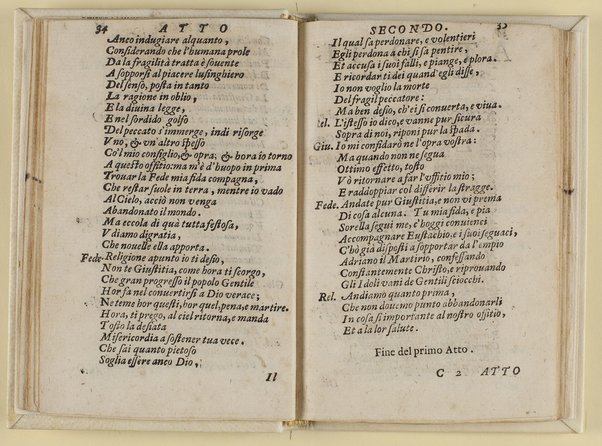 34 ATTO
Anco indugiare alquanto,
Considerando che l'humana prole
Da la fragilità tratta è souente
A sopporsi al piacere lusinghiero
Del senso, posta in tanto
La ragione in oblio,
E la diuina legge,
E nel sordido golfo
Del peccato s'immerge, indi risorge
Vno, & vn'altro spesso
Co'l mio consiglio, & opra; & hora io torno
A questo offitio: ma m'è d'huopo in prima
Trouar la Fede mia fida compagna,
Che restar suole in terra, mentre io vado
Al Cielo, acciò non venga
Abandonato il mondo.
Ma eccola di quà tutta festosa,
Vdiamo di gratia,
Che nouelle ella apporta.
Fede. Religione apunto io ti desio,
Non te Giustitia, come hora ti scorgo,
Che gran progresso il popolo Gentile
Hor fa nel conuertirsi a Dio verace;
Ne teme hor questi, hor quel, pena, e martire.
Hora, ti prego, al ciel ritorna, e manda
Tosto la desiata
Misericordia a sostener tua vece.
Che sai quanto pietoso
Soglia essere anco Dio,
Il
SECONDO. 35
Il qual sa perdonare, e volentieri
Egli perdona a chi si sa pentire,
Et accusa i suoi falli, e piange, e plora.
E ricordarti dei quand'egli disse,
Io non voglio la morte
Del fragil peccatore:
Ma ben desio, ch'ei si conuerta, e viua.
Rel. L'istesso io dico, e vanne pur sicura
Sopra di noi, riponi pur la spada.
Giu. Io mi confidarò ne l'opra vostra:
Ma quando non ne segua
Ottimo effetto, tosto
Vò ritornare a far l'vffitio mio;
E raddoppiar col differir la stragge.
Fede. Andate pur Giustitia, e non vi prema
Di cosa alcuna. Tu mia fida, e pia
Sorella segui me, c'hoggi conuienci
Accompagnare Eustachio, e i suoi seguaci,
C'hò già disposti a sopportar da l'empio
Adriano il Martirio, confessando
Constantemente Christo, e riprouando
Gli Idoli vani de Gentili sciocchi.
Rel. Andiamo quanto prima,
Che non douemo punto abbandonarli
In cosa sì importante al nostro offitio,
Et a la lor salute.
Fine del primo Atto.
C 2 ATTO